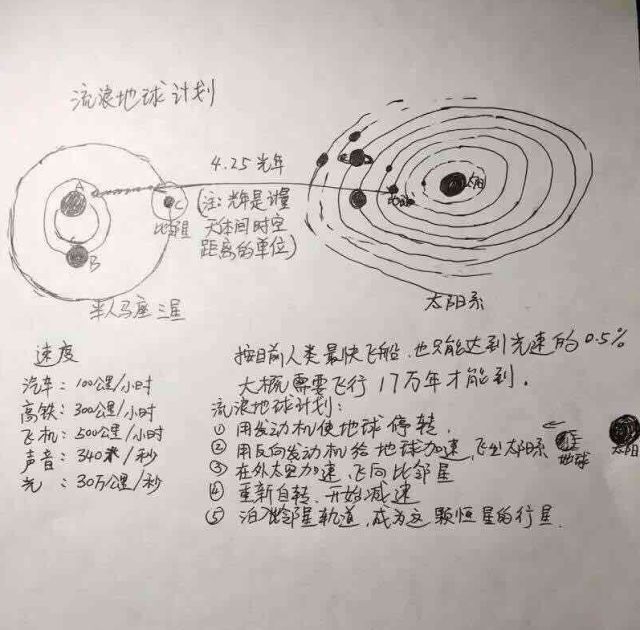 流浪地球计划
4.25光年
(注:光年是计量
天体间时空
距离的单位)
A
B
C
比邻星
半人马座三星
太阳
地球
太阳系
速度
汽车:100公里/小时
高铁:300公里/小时
飞机:500公里/小时
声音:340米/秒
光:30万公里/秒
按目前人类最快飞船,也只能达到光速的0.5%
大概需要飞行17万年才能到.
流浪地球计划:
① 用发动机使地球停转,
② 用反向发动机给地球加速,飞出太阳系
③ 在外太空加速,飞向比邻星
④ 重新自转,开始减速
⑤ 泊入比邻星轨道,成为这颗恒星的行星.
地球
太阳